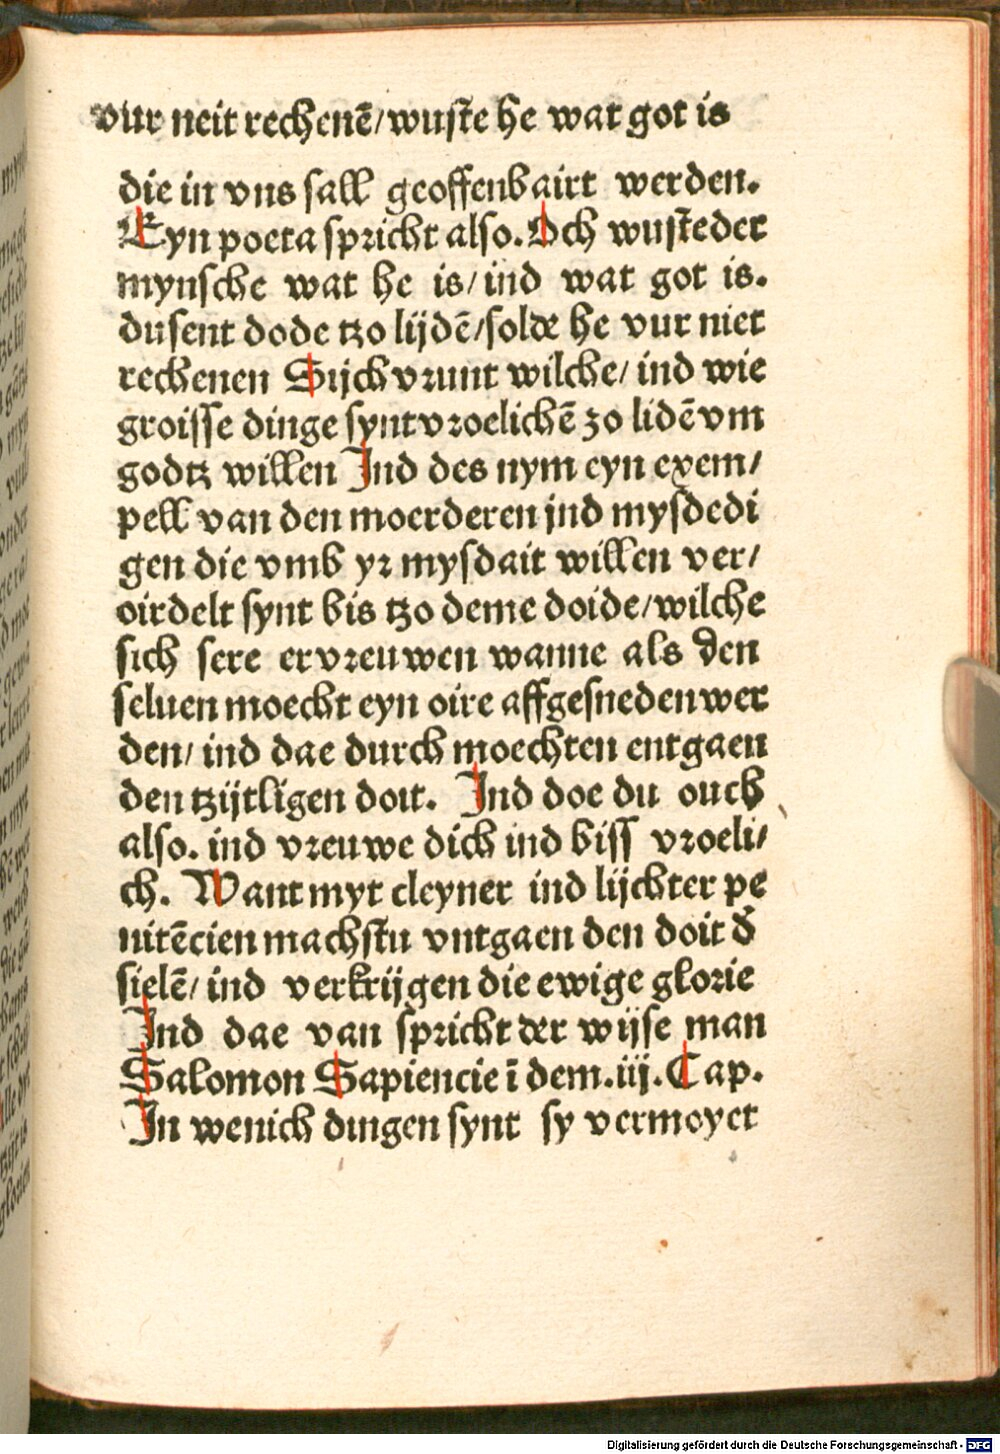 vur neit rechenē/wuste he wat got is
die in vns sall geoffenbairt werden.
Eyn poeta spricht also. Och wusteder
mynsche wat he is/ind wat got is.
dusent dode tzo lijdē/solde he vur niet
rechenen Sijch vrunt wilche/ ind wie
groisse dinge synt vroelichē zo lidē vm
godtz willen Ind des nym eyn exem/
pell van den moerderen jnd mysdedi
gen die vmb yr mysdait willen ver/
oirdelt synt bis tzo deme doide/wilche
sich sere ervreuwen wanne als den
seluen moecht eyn oire affgesneden wer
den/ ind dae durch moechten entgaen
den tzijtligen doit. Ind doe du ouch
also. ind vreuwe dich ind biss vroeli/
ch. Want myt cleyner ind lijchter pe
nitēcien machstu vntgaen den doit đ
sielē/ ind verkrijgen die ewige glorie
Ind dae van spricht der wijse man
Salomon Sapiencie ī dem.iij.Cap.
In wenich dingen synt sy vermoyet
Digitalisierung gefördert durch die Deutsche Forschungsgemeinschaft - DFG